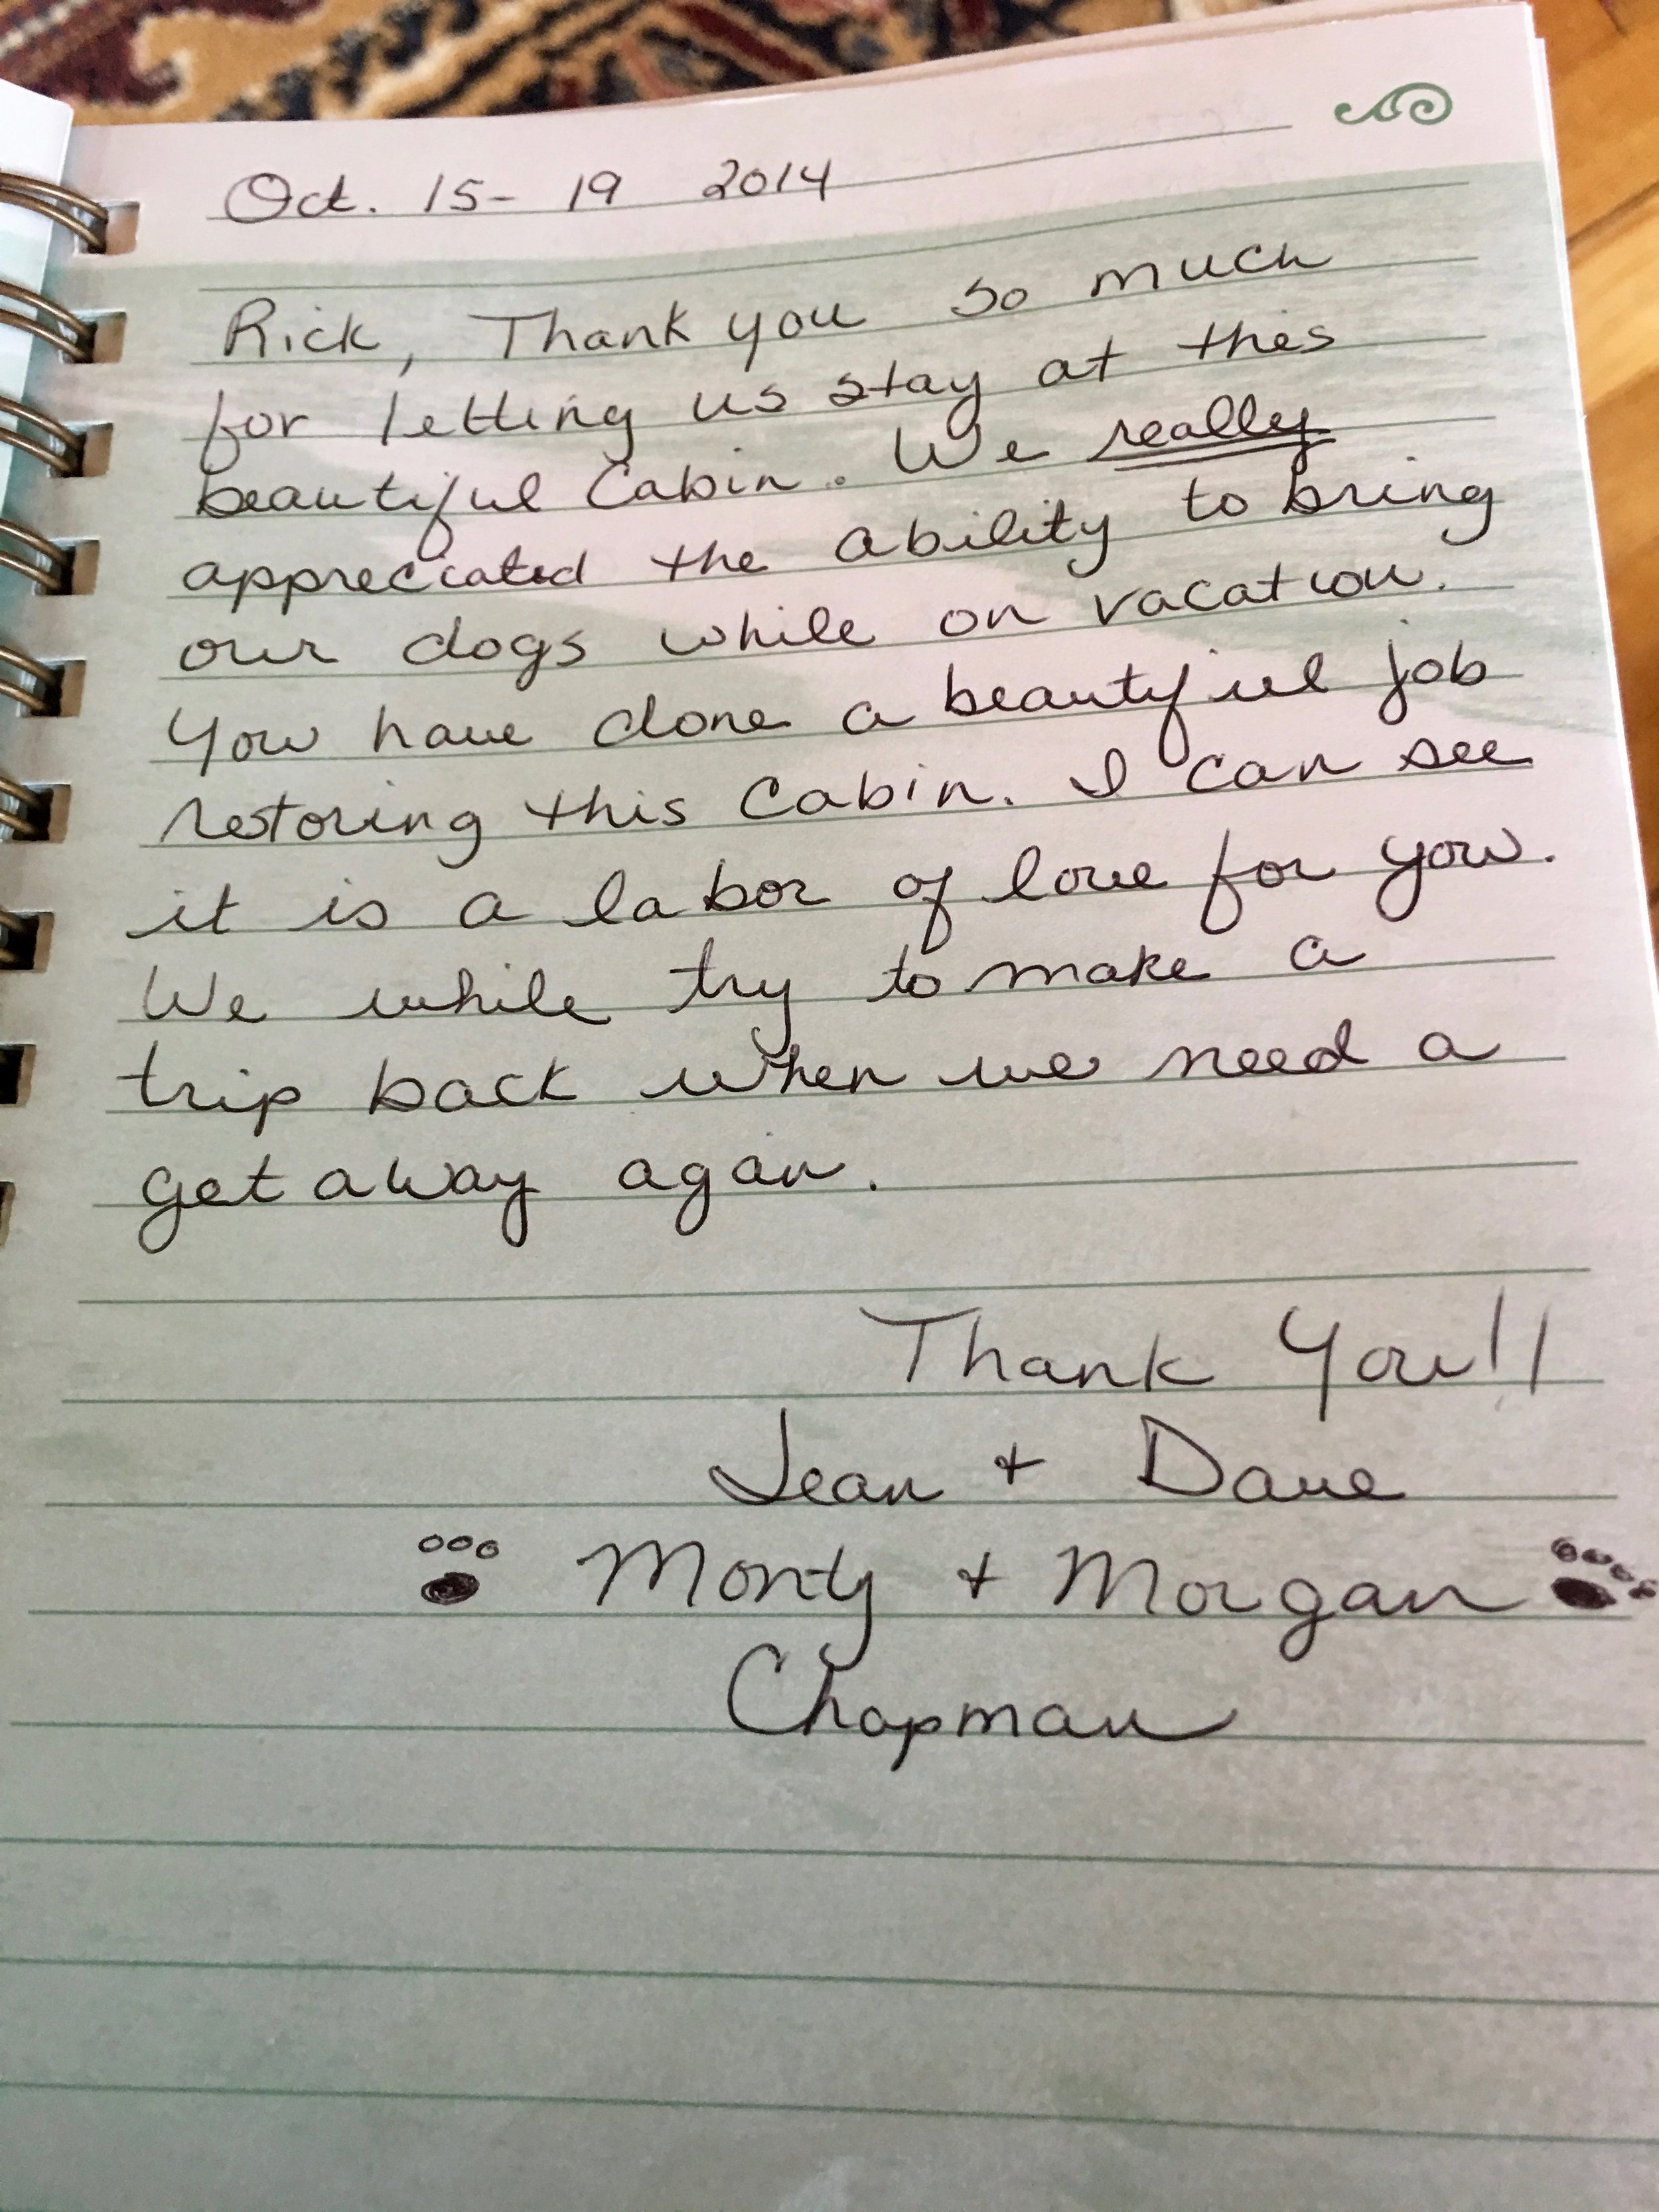 Oct. 15-19 2014
Rick, Thank you so much
for letting us stay at this
beautiful Cabin. We really
appreciated the ability to bring
our dogs while on vacation.
You have done a beautiful job
restoring this Cabin. I can see
it is a labor of love for you.
We while try to make a
trip back when we need a
get away again.
Thank You!!
Jean + Dave
Monty + Morgan
Chapman